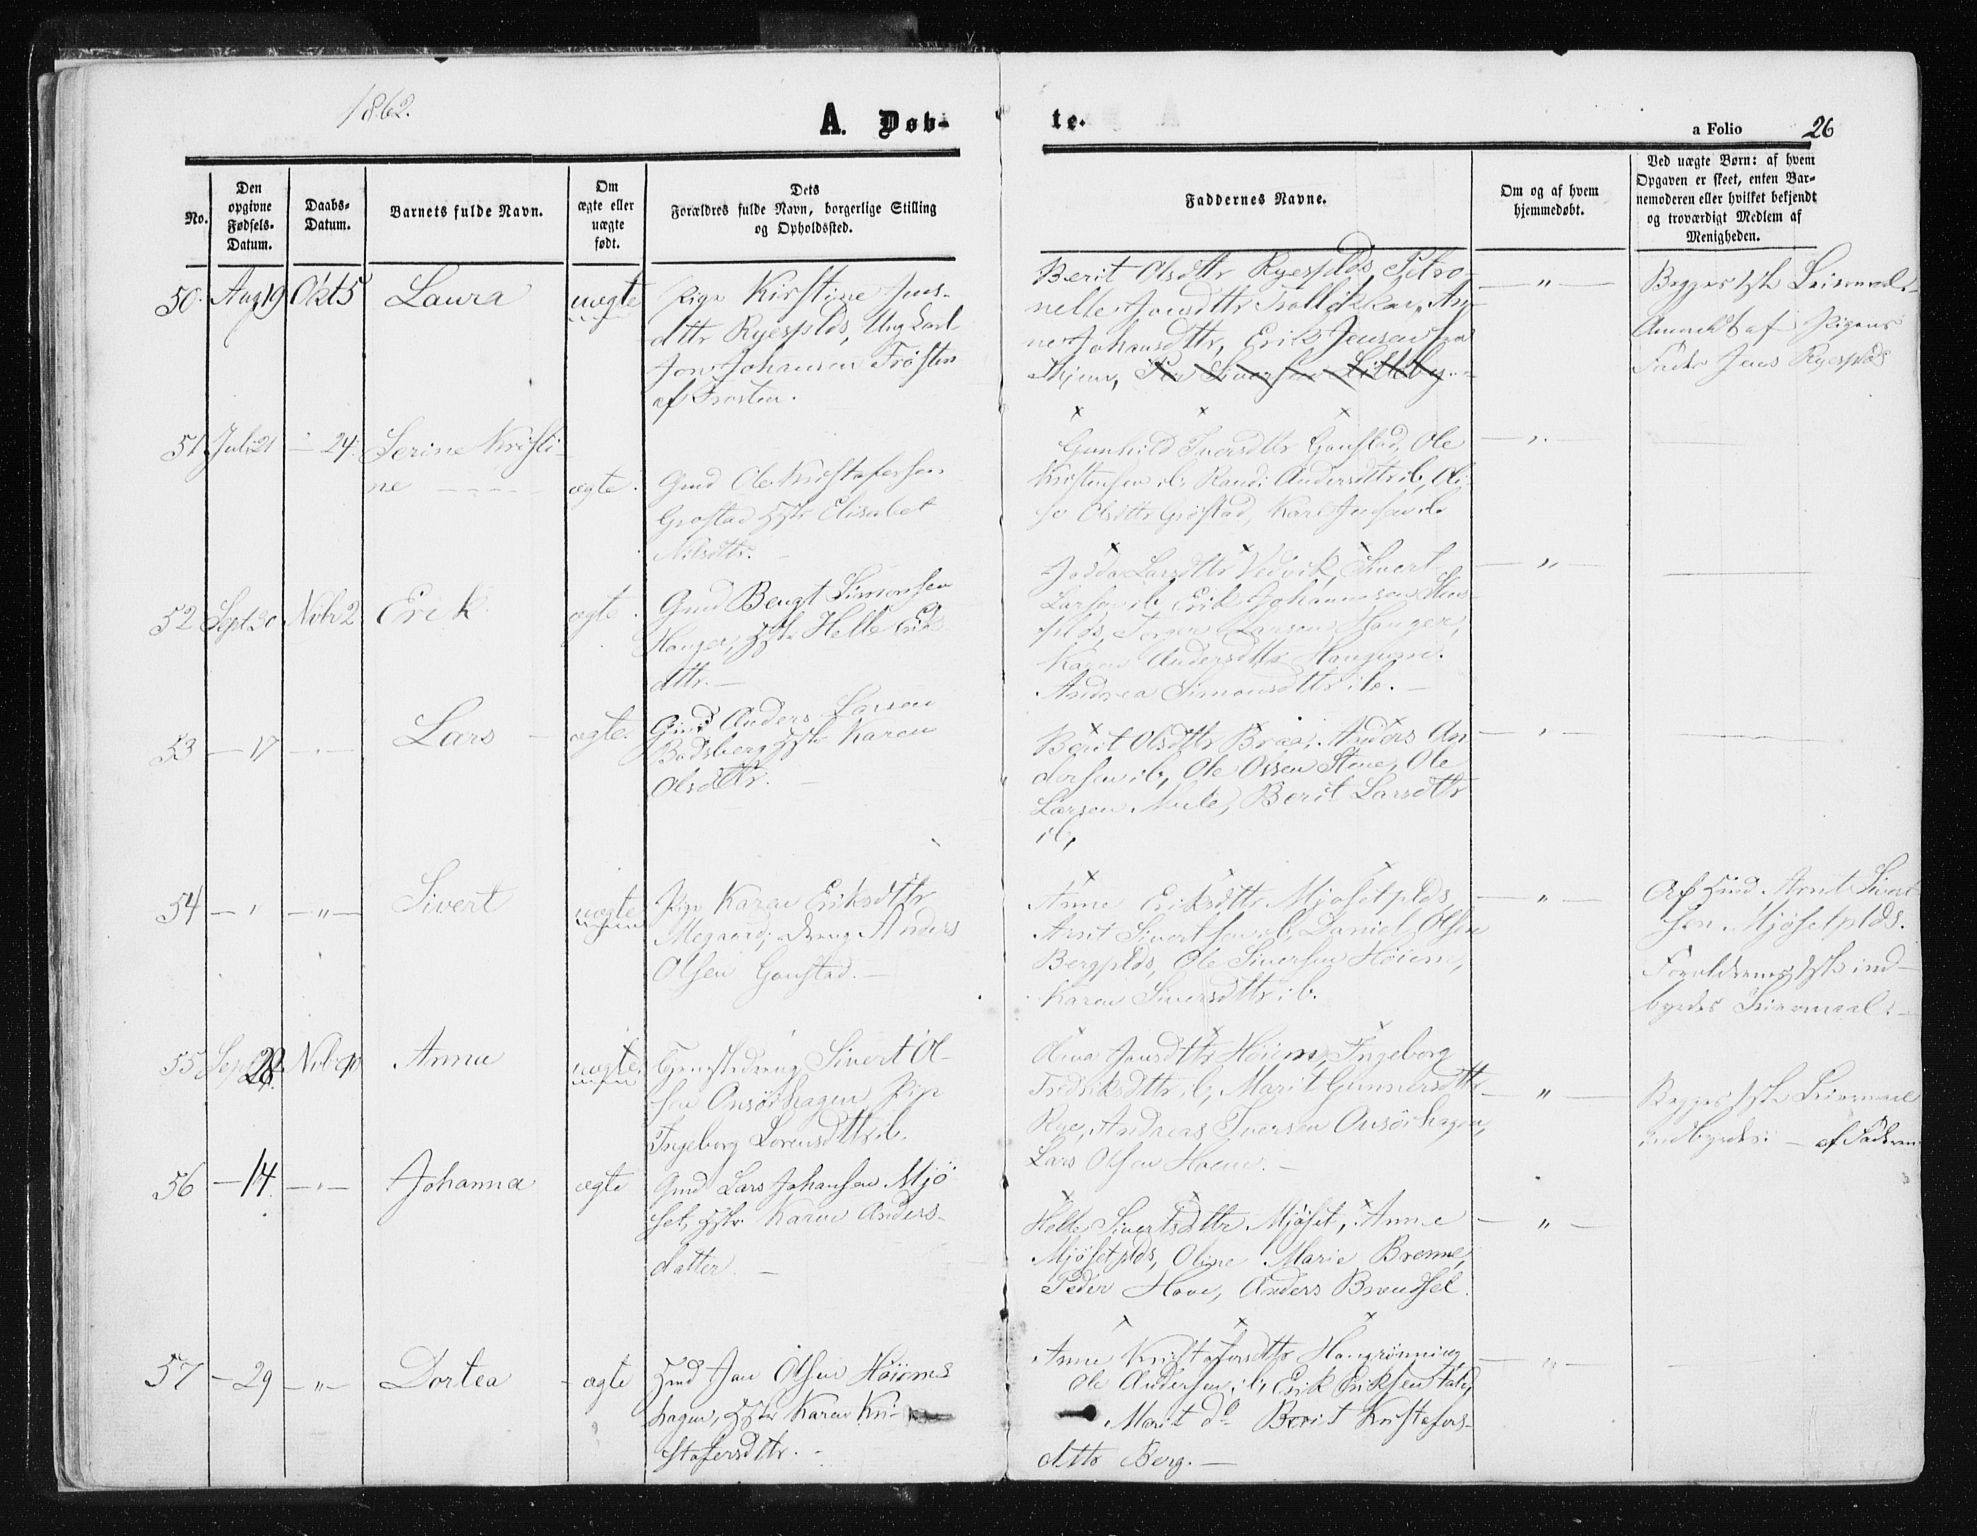 1862.
A. Døb-
te.
a Folio 26
No.
Den
opgivne
Fødsels-
Datum.
Daabs-
Datum.
Barnets fulde Navn.
Om
ægte eller
uægte
født.
Dets
Forældres fulde Navn, borgerlige Stilling
og Opholdssted.
Faddernes Navne.
Om og af hvem
hjemmedøbt.
Ved uægte Børn: af hvem
Opgaven er skeet, enten Bar-
nemoderen eller hvilket bekjendt
og troværdigt Medlem af
Menigheden.
50. Aug 19 Okt 5 Laura uægte
Pige Kirstine Jens-
dttr Ryesplds, Ung Karl
Jon Johansen Frøsten
af Frosten.
Berit Olsdttr Ryesplds, Petro-
nelle Jonsdttr Trolldekkar, An-
ne Johansdttr, Erik Jensen fra
Begges 1ste Leiermaal.
Anmeldt af Pigens
Fader Jens Ryesplds
51 Juli 21 - 24. Serine Kristi-
ne ægte.
Gmd Ole Kristofersen
Grøstad Hstr Elisabet
Nilsdttr.
Gunhild Iversdttr Gaustad, Ole
Kristensen ib, Randi Andersdttr ib, Oli-
ne Olsdttr Grøstad, Karl Jensen ib
52 Sept 20 Nvbr 2 Erik ægte.
Gmd Bengt Simonsen
Hauger, Hstr Helle Eriks
dttr. -
Larsdttr Vedvik, Sivert
Larsen ib, Erik Johannesen
Larsen Hauger,
Karen Andersdttr Haugum.
Andrea Simonsdttr ib. -
53 - 17 - Lars - ægte.
Gmd Anders Larsen
Badsberg Hstr Karen
Olsdttr. -
Berit Olsdttr Bræe, Anders An
dersen ib, Ole Olsen Stene, Ole
Larsen Mule, Berit Larsdttr
ib,
54 - " - " - Sivert uægte
Pige Karen Eriksdttr
Megaard, Dreng Anders
Olsen Gaustad. -
Anne Eriksdttr Mjøsetplds,
Arnt Sivertsen ib, Daniel Olsen
Bergplds, Ole Siversen Høiem,
Karen Siversdttr ib.
Af Hmd Arnt Sivert
sen Mjøsetplds.
Forældrenes 1ste ind-
byrdes Leiermaal. -
55 Sept 28. Nvbr 9 Anna uægte.
Tjenestedreng Sivert Ol-
sen Onsøihagen, Pige
Ingeborg Lorensdttr ib.
Olina Jonsdttr Høiem, Ingeborg
Fredriksdttr ib, Marit Gunnersdttr
Rye, Andreas Iversen Onsøihagen,
Lars Olsen Hoem. -
Begges 1ste Leiermaal
indbyrdes. - af Faderen
56 - 14. - " - Johanna ægte
Gmd Lars Johansen Mjø
set, Hstr. Karen Anders-
datter. -
Helle Sivertsdttr Mjøset, Anne
Mjøsetplds, Oline Marie Brenne,
Peder Hove, Anders Brændsel.
57 - 29 - " - Dortea - ægte
Hmd Jon Olsen Høiems
hagen, Hstr Karen Kri-
stofersdttr. -
Anne Kristofersdttr Haugrønning
Ole Andersen ib, Erik Eriksen
Marit do Berit Kristofers-
dttr Berg. -